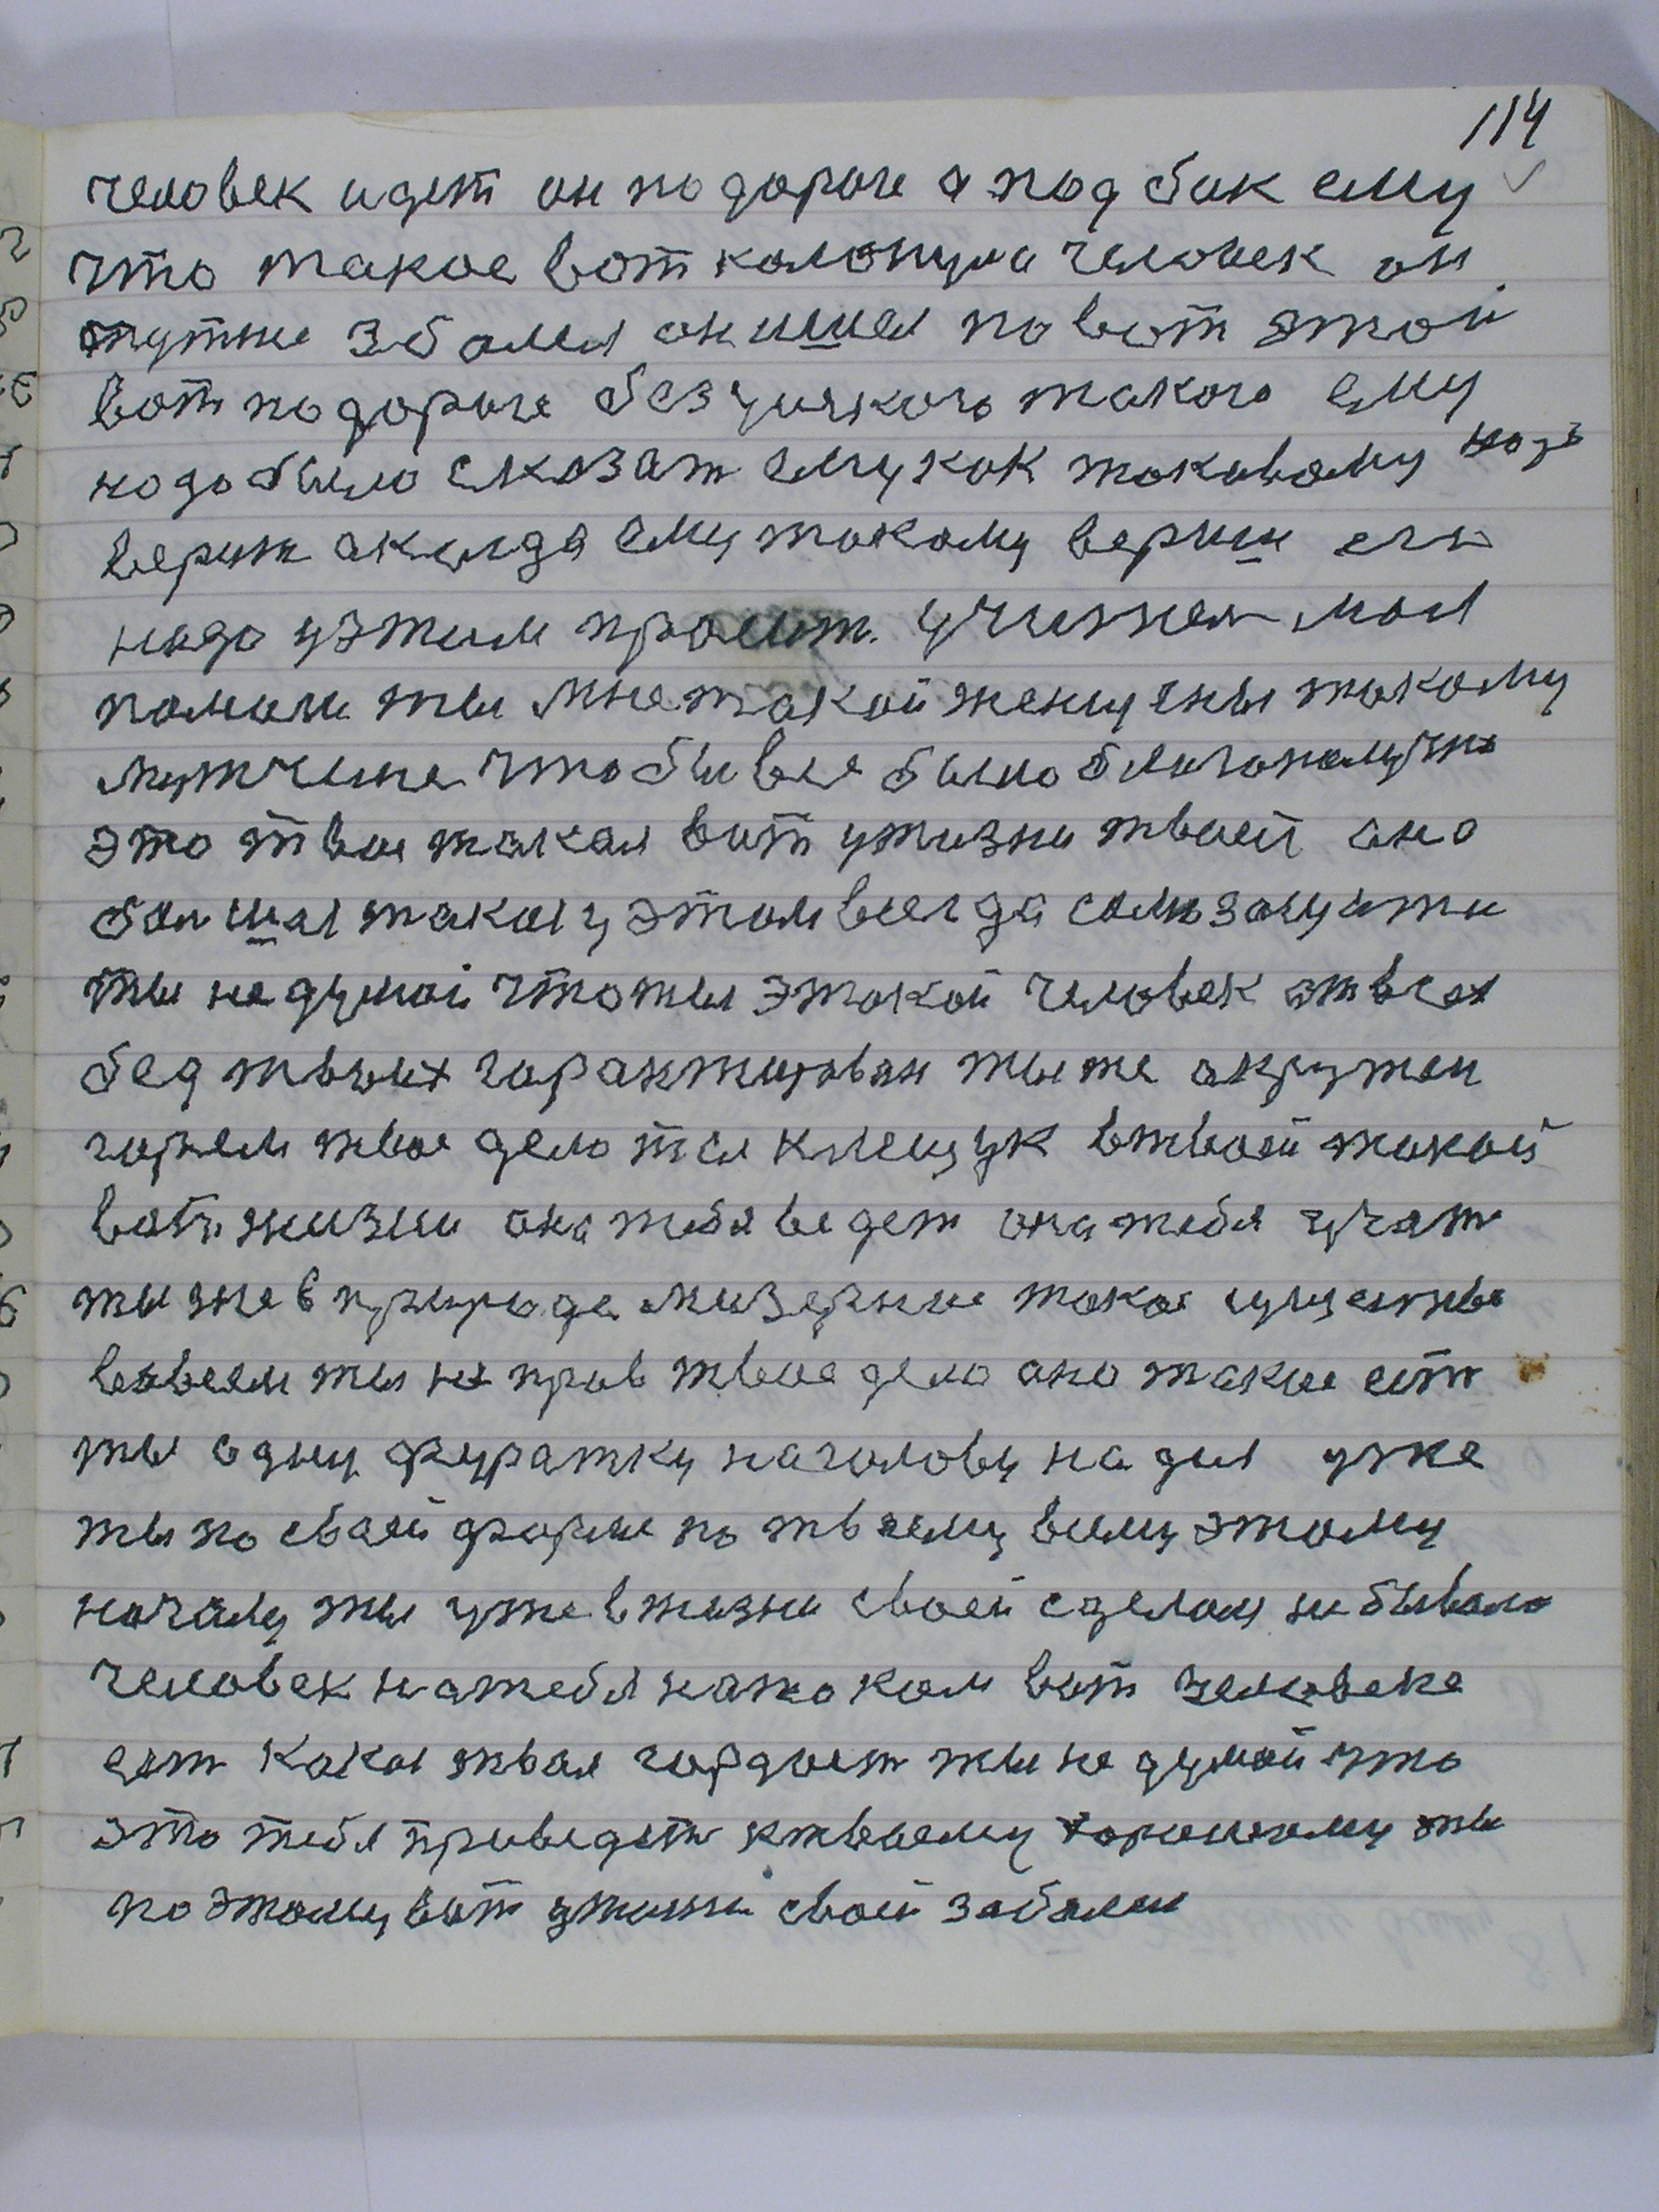 114
человек идет он по дороге а под бок ему
что такое вот кольнула человек он
тут же зболел он ишел по вот этой
вот по дороге без усякого такого ему
надо было сказат ему как таковому надо
верит акогда ему такому вериш его
надо у этим просит. учител мой
помоги ты мне такой женщены такому
мужчине чтобы все было благополучно
это твоя такая вот ужизни твоей она
болшая такая у этом всегда само защити
ты не думай что ты этакой человек отвсех
бед твоих гарантирован ты же акружен
горем твое дело тея клещук втвоей такой
вот жизни она тебя ведет она тебя учит
ты же в природе мизерное такое существо
вовсем ты не прав твое дело оно такое ест
ты одну фуратку наголову надил уже
ты по своей форме по твоему всему этому
началу ты уже вжизни своей сделан небывало
человек на тебя на таком вот человеке
ест какая твоя гордост ты не думай что
это тебя приведет ктвоему хорошому ты
поэтому вот ужизни своей заболи